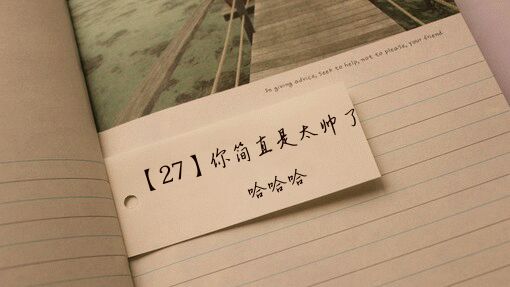 In giving advice, seek to help, not to please, your friend.
【27】你简直是太帅了
哈哈哈